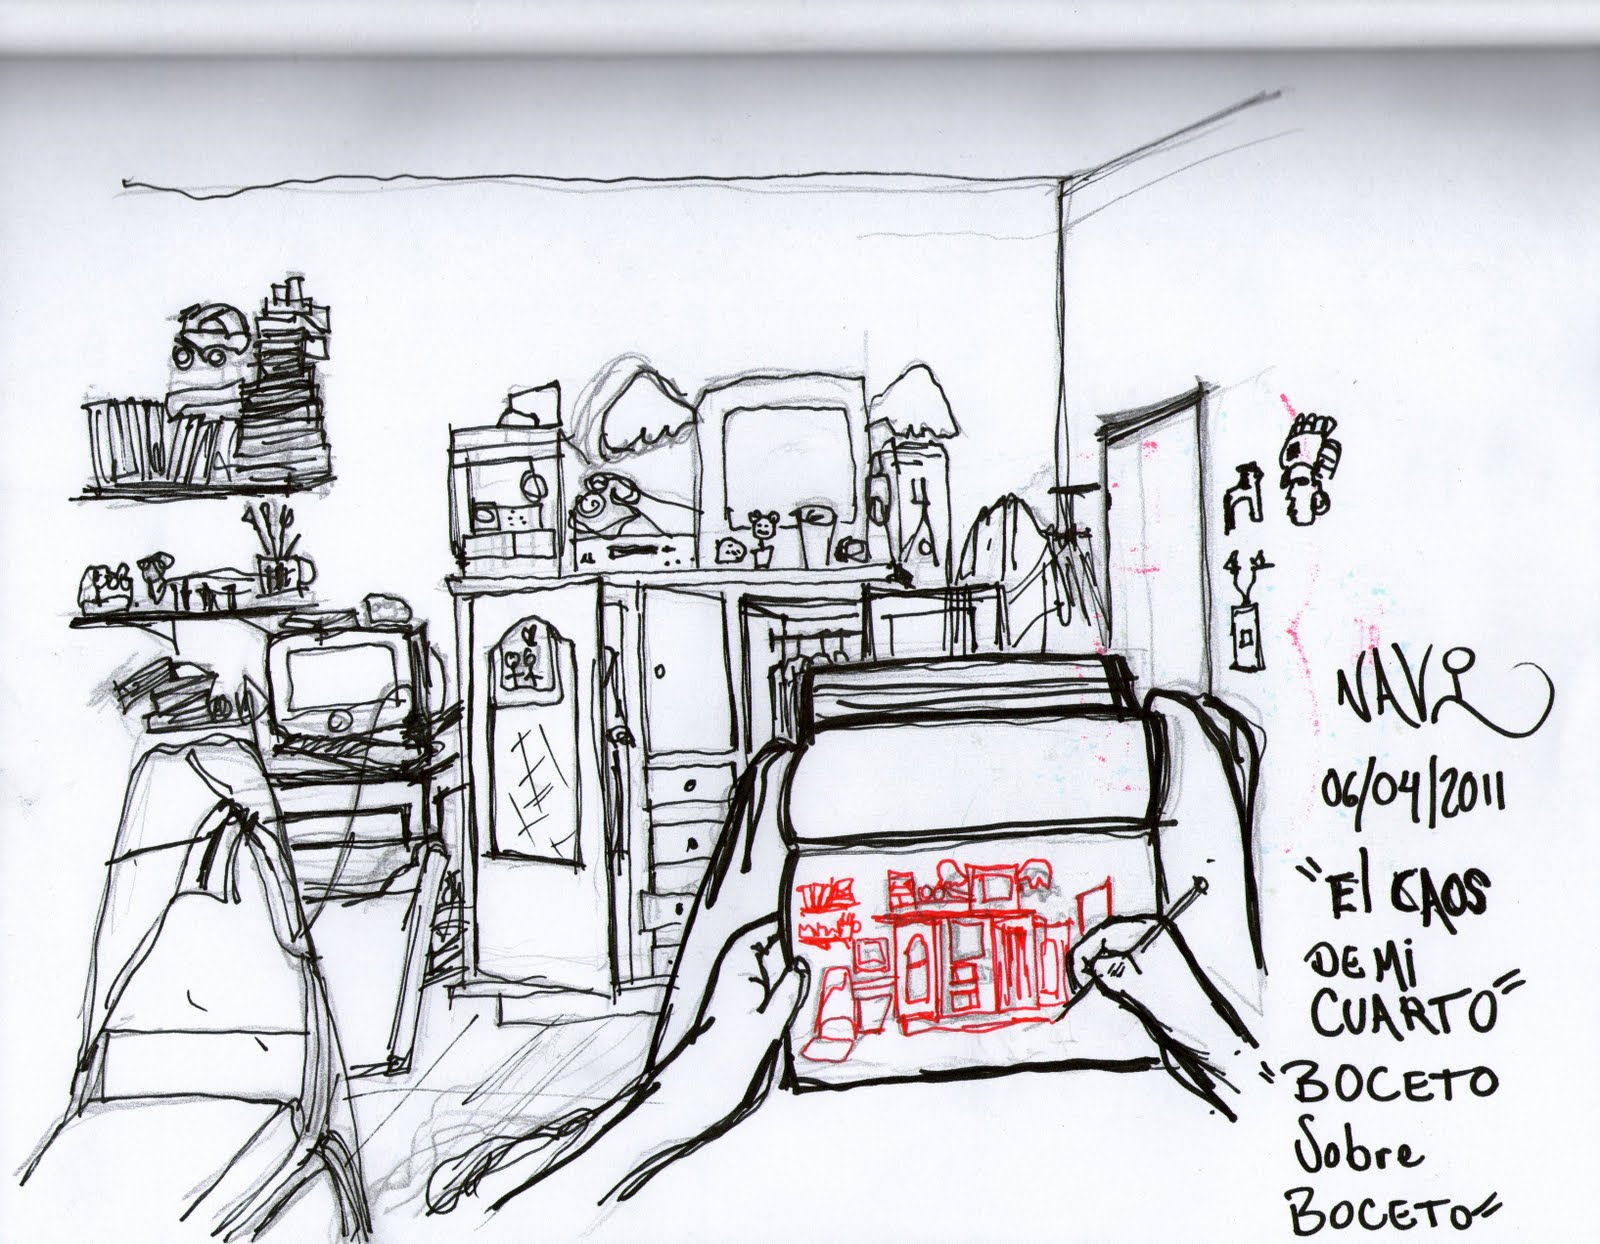 NAVi
06/04/2011
"El CAOS
DE MI
CUARTO"
"BOCETO
Sobre
BOCETO"